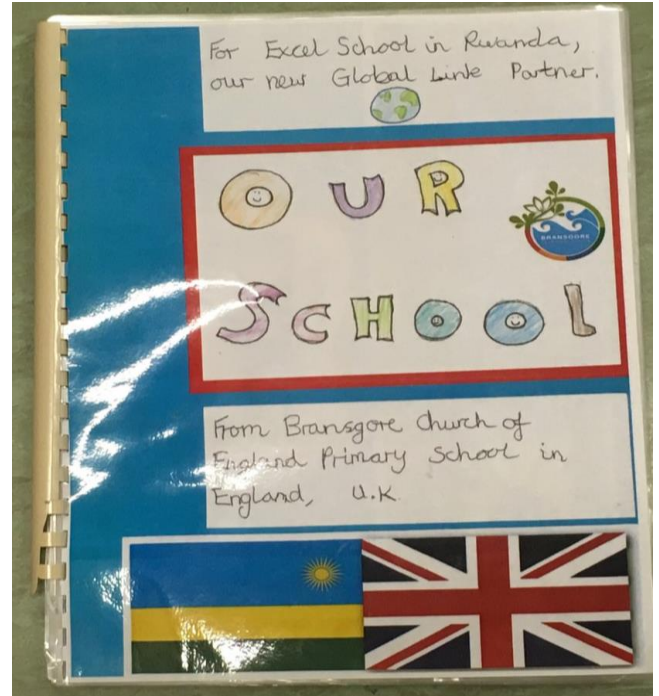 For Excel School in Rwanda,
our new Global Link Partner.
OUR
BRANSGORE
SCHOOL
From Bransgore Church of
England Primary School in
England, U.K.